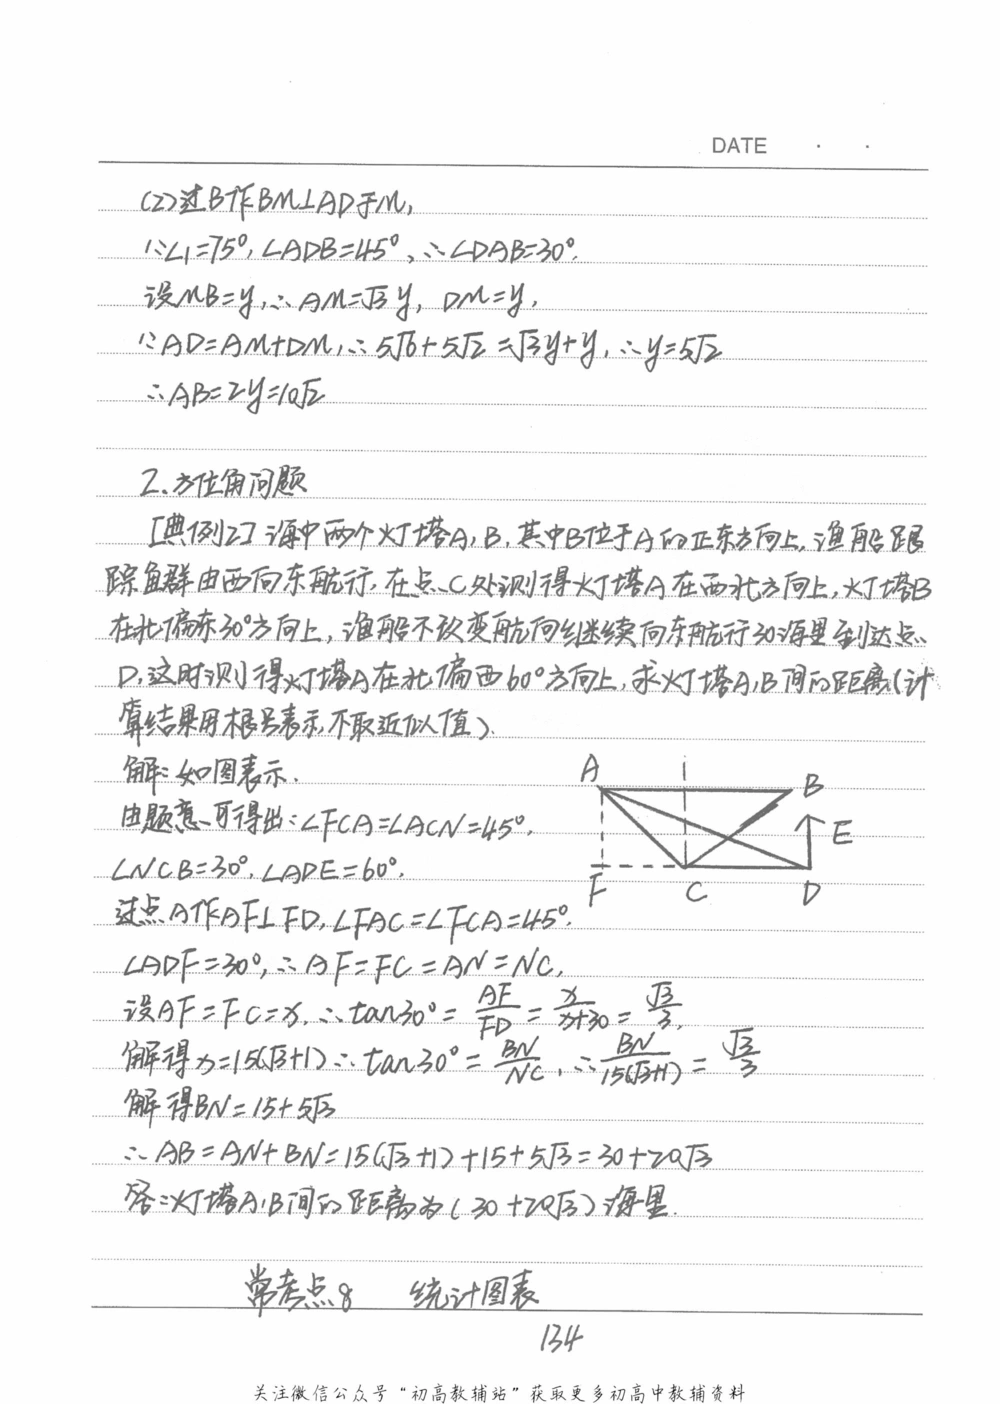 DATE · ·
(2)过B作BM⊥AD于M,
∵∠1=75°,∠ADB=45°,∴∠DAB=30°.
设MB=y,∴AM=√3y, DM=y,
∵AD=AM+DM,∴5√6+5√2=√3y+y,∴y=5√2
∴AB=2y=10√2
2、方位角问题
[典例2]海中两个灯塔A,B,其中B位于A的正东方向上,渔船跟
踪鱼群由西向东航行,在点C处测得灯塔A在西北方向上,灯塔B
在北偏东30°方向上,渔船不改变航向继续向东航行30海里到达点
D,这时测得灯塔A在北偏西60°方向上,求灯塔A,B间的距离(计
算结果用根号表示,不取近似值).
解:如图表示.
由题意可得出:∠FCA=∠ACN=45°,
∠NCB=30°,∠ADE=60°.
过点A作AF⊥FD,∠FAC=∠FCA=45°.
∠ADF=30°,∴AF=FC=AN=NC,
设AF=FC=x,∴tan30°=AF/FD=x/(x+30)=√3/3.
解得x=15(√3+1)∴tan30°=BN/NC,∴BN/15(√3+1)=√3/3
解得BN=15+5√3
∴AB=AN+BN=15(√3+1)+15+5√3=30+20√3
答:灯塔A,B间的距离为(30+20√3)海里.
A
B
E
F
C
D
常考点8 统计图表
134
关注微信公众号“初高教辅站”获取更多初高中教辅资料